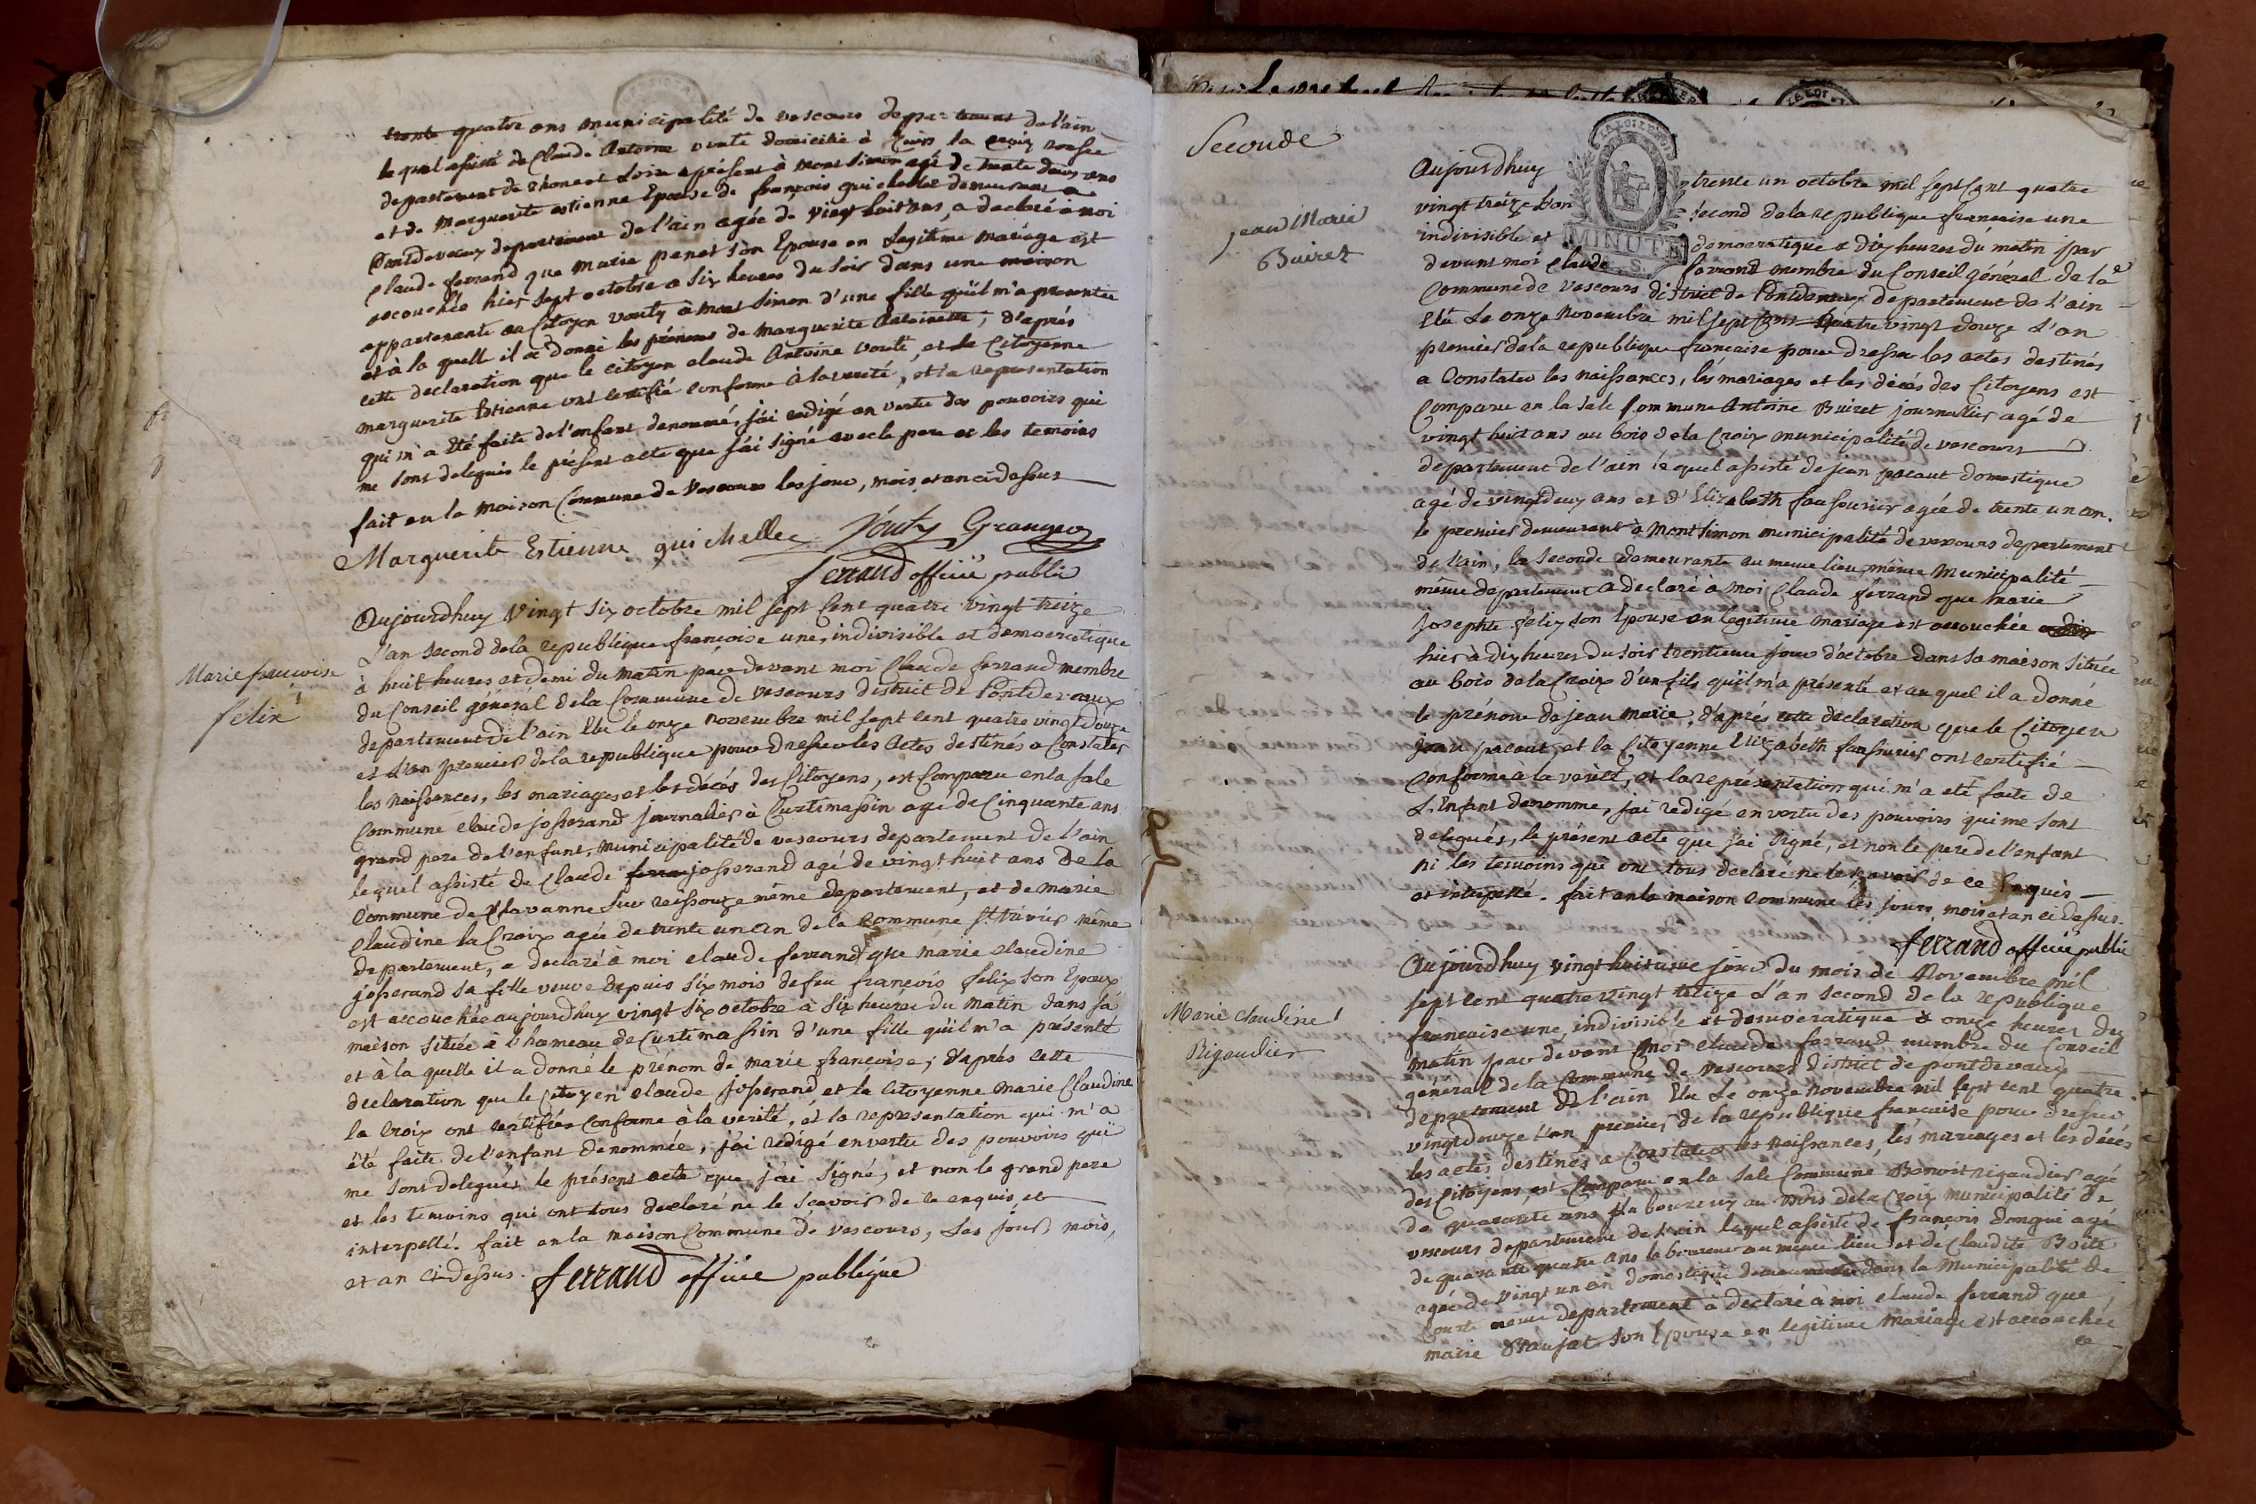 trente quatre ans municipalité de vescours departement de l'ain
le quel assisté de Claude Antoine voute domicilié à Cuire la croix rousse
departement de rhone et loire a présent à mont simon agé de trente deux ans
et de Marguerite estienne Epouse de françois quichellet demeurant a
Pontdevaux departement de l'ain agée de vingt huit ans, a declaré à moi
Claude ferrand que Marie penet son Epouse en legitime mariage est
accouchée hier sept octobre a six heures du soir dans une maison
appartenante au Citoyen vouty à mont simon d'une fille qu'il m'a presentée
et à la quelle il a donné les prénoms de Marguerite Antoinette; d'après
cette declaration que le citoyen claude Antoine vouté, et la Citoyenne
marguerite Estienne ont certifié conforme à la verité, et la representation
qui m'a été faite de l'enfant denommé, j'ai redigé en vertu des pouvoirs qui
me sont delegués le présent acte que j'ai signé avec le pere et les temoins
fait en la maison Commune de Vescours les jour, mois et an ci dessus
Marguerite Estienne quichellec Vouty Grangeo
ferrand officié public
Marie francoise
felix
Aujourdhuy Vingt six octobre mil sept Cent quatre vingt treize
L'an second de la republique françoise une, indivisible et democratique
à huit heures et demi du matin par devant moi Claude ferrand membre
du Conseil général de la Commune de vescours district de Pontdevaux
departement de l'ain Elu le onze novembre mil sept cent quatre vingt douze
et d'an premier de la republique pour dresser les Actes destinés a Constater
les naissances, les mariages et les décés des Citoyens, est Comparu en la sale
Commune claude josserand journalier à Curtemassin agé de Cinquante ans
grand pere de l'enfant, municipalité de vescours departement de l'ain
lequel assisté de Claude josserand agé de vingt huit ans De la
Commune de Chavanne sur reissouze même departement, et de marie
Claudine la Croix agée de trente un an de la Commune St trivier même
departement, a declaré à moi claude ferrand que marie claudine
josserand sa fille veuve depuis six mois de feu françois felix son Epoux
est accouchée aujourdhuy vingt six octobre à six heures du matin dans sa
maison située à l'hameau de Curtemassin d'une fille qu'il m'a présenté
et à la quelle il a donné le prénom de marie francoise; d'aprés cette
declaration que le Citoyen claude josserand, et la Citoyenne marie Claudine
la Croix ont certifiés conforme à la verité, et la representation qui m'a
été faite de l'enfant denommée, j'ai redigé en vertu des pouvoirs qui
me sont delegués le présent acte que j'ai signé, et non le grand pere
et les temoins qui ont tous declaré ne le scavoir de ce enquis et
interpellé. fait en la maison Commune de vescours, les jour, mois,
et an cidessus. ferrand officié publique
Seconde
MINUTE
jean Marie
Buiret
Aujourdhuy trente un octobre mil sept Cent quatre
vingt treize l'an second de la republique francaise une
indivisible et democratique a dix heures du matin par
devant moi Claude ferrand membre du Conseil général de la
Commune de vescours district de Pontdevaux departement de l'ain
Elu Le onze Novembre mil sept Cent Quatre vingt douze L'an
premier de la republique francaise pour dresser les actes destinés
a Constater les naissances, les mariages et les décés des Citoyens est
Comparu en la sale Commune Antoine Buiret journallier agé de
vingt huit ans au bois de la Croix municipalité de vescours
departement de l'ain le quel assisté de jean pacaut domestique
agé de vingt deux ans et d'Elizabeth fausurier agée de trente un an.
le premier demeurant à Mont simon municipalité de vescours departement
de l'ain, la seconde demeurante au meme lieu même Municipalité
même departement a declaré à moi Claude ferrand que Marie
Josephte félix son Epouse en legitime mariage est accouchée
hier à dix heures du soir trentieme jour d'octobre dans sa maison située
au bois de la Croix d'un fils qu'il m'a présenté et au quel il a donné
le prénom de jean marie, d'aprés cette declaration que le Citoyen
jean pacaut et la Citoyenne Elizabeth fausurier ont certifié
conforme à la verité, et la représentation qui m'a été faite de
L'enfant denommé, j'ai redigé en vertu des pouvoirs qui me sont
delegués, le présent acte que j'ai signé, et non le pere de l'enfant
ni les temoins qui ont tous declaré ne le scavoir de ce Enquis
et interpellé. fait en la maison Commune les jours, mois et an ci dessus.
ferrand officié public
Marie Claudine
Rigaudier
Aujourdhuy vingt huitieme jour du mois de Novembre mil
sept cent quatre vingt treize L'an second de la republique
francaise une, indivisible et democratique a onze heures du
matin par devant moi claude ferrand membre du Conseil
général de la Commune de vescours district de pontdevaux
departement de l'ain Elu Le onze novembre mil sept cent quatre
vingt douze L'an premier de la republique francaise pour dresser
les actes destinés a Constater les naissances, les mariages et les décés
des Citoyens est Comparu en la sale Commune Benoit rigaudier agé
de quarante ans laboureur au Bois de la Croix municipalité de
vescours departement de l'ain lequel assisté de françois Donguė agé
de quarante quatre ans laboureur au meme lieu et de Claudite Boité
agée de vingt un an domestique demeurante dans la Municipalité de
Courte meme departement a declaré à moi claude ferrand que
marie son Epouse en legitime mariage est accouchée
ce